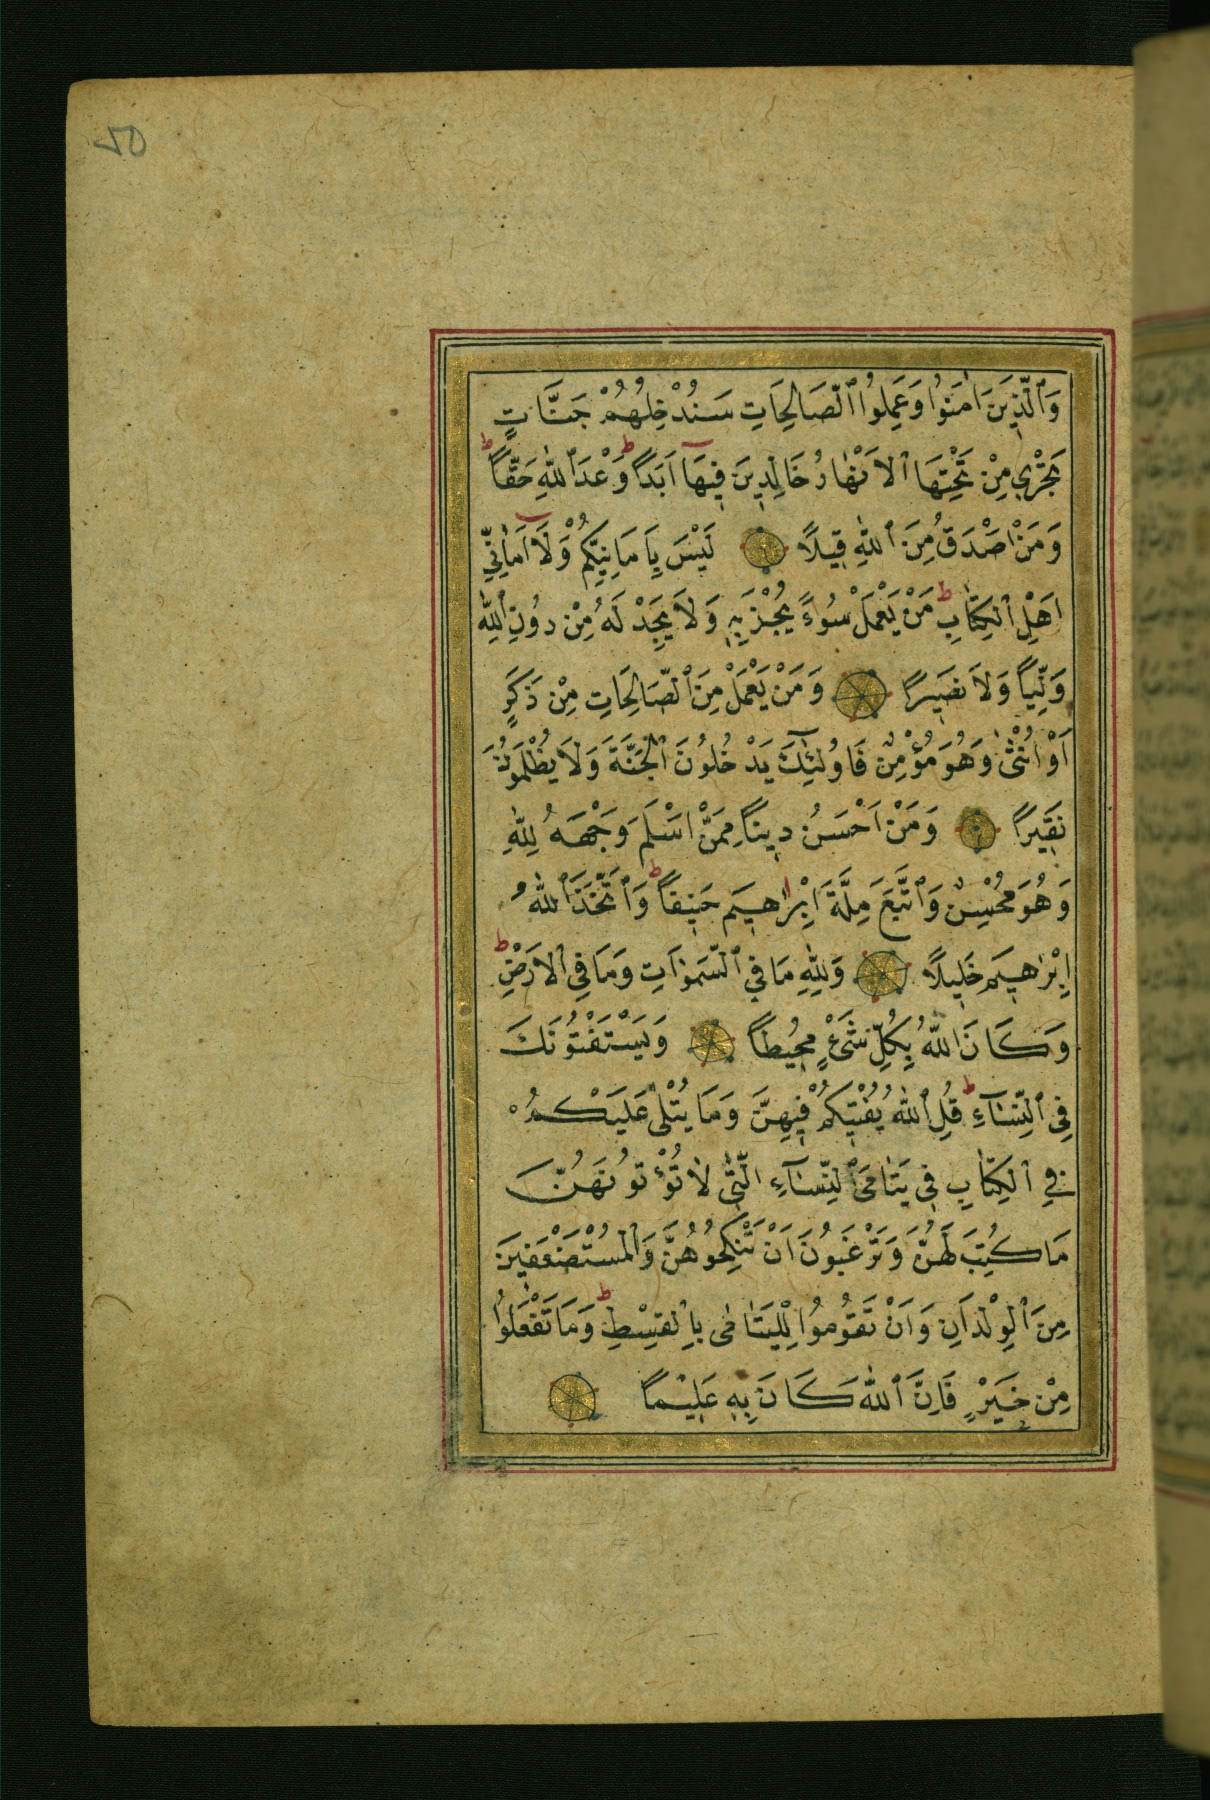 وَٱلَّذِينَ اٰمَنُوا وَعَمِلُوا ٱلصَّالِحَاتِ سَنُدْخِلُهُمْ جَنَّاتٍ
تَجْرِي مِنْ تَحْتِهَا ٱلاَنْهَارُ خَالِدِينَ فِيهَآ اَبَدًا ط وَعْدَ ٱللّٰهِ حَقًّا ط
وَمَنْ اَصْدَقُ مِنَ ٱللّٰهِ قِيلًا لَيْسَ بِاَمَانِيِّكُمْ وَلَآ اَمَانِيِّ
اَهْلِ ٱلْكِتَابِ ط مَنْ يَعْمَلْ سُوءًا يُجْزَ بِهِ وَلاَ يَجِدْ لَهُ مِنْ دُونِ ٱللّٰهِ
وَلِيًّا وَلاَ نَصِيرًا وَمَنْ يَعْمَلْ مِنَ ٱلصَّالِحَاتِ مِنْ ذَكَرٍ
اَوْ اُنْثٰى وَهُوَ مُؤْمِنٌ فَاُولٰٓئِكَ يَدْخُلُونَ ٱلْجَنَّةَ وَلاَ يُظْلَمُونَ
نَقِيرًا وَمَنْ اَحْسَنُ دِينًا مِمَّنْ اَسْلَمَ وَجْهَهُ لِلّٰهِ
وَهُوَ مُحْسِنٌ وَٱتَّبَعَ مِلَّةَ اِبْرٰاهِيمَ حَنِيفًا ط وَٱتَّخَذَ ٱللّٰهُ
اِبْرٰاهِيمَ خَلِيلًا وَلِلّٰهِ مَا فِي ٱلسَّمٰوَاتِ وَمَا فِي ٱلاَرْضِ ط
وَكَانَ ٱللّٰهُ بِكُلِّ شَيْءٍ مُحِيطًا وَيَسْتَفْتُونَكَ
فِي ٱلنِّسَآءِ ط قُلِ ٱللّٰهُ يُفْتِيكُمْ فِيهِنَّ وَمَا يُتْلٰى عَلَيْكُمْ
فِي ٱلْكِتَابِ فِي يَتَامَى ٱلنِّسَآءِ الّٰتِي لاَ تُؤْتُونَهُنَّ
مَا كُتِبَ لَهُنَّ وَتَرْغَبُونَ اَنْ تَنْكِحُوهُنَّ وَٱلْمُسْتَضْعَفِينَ
مِنَ ٱلْوِلْدَانِ وَاَنْ تَقُومُوا لِلْيَتَامٰى بِالْقِسْطِ ط وَمَا تَفْعَلُوا
مِنْ خَيْرٍ فَاِنَّ ٱللّٰهَ كَانَ بِهِ عَلِيمًا